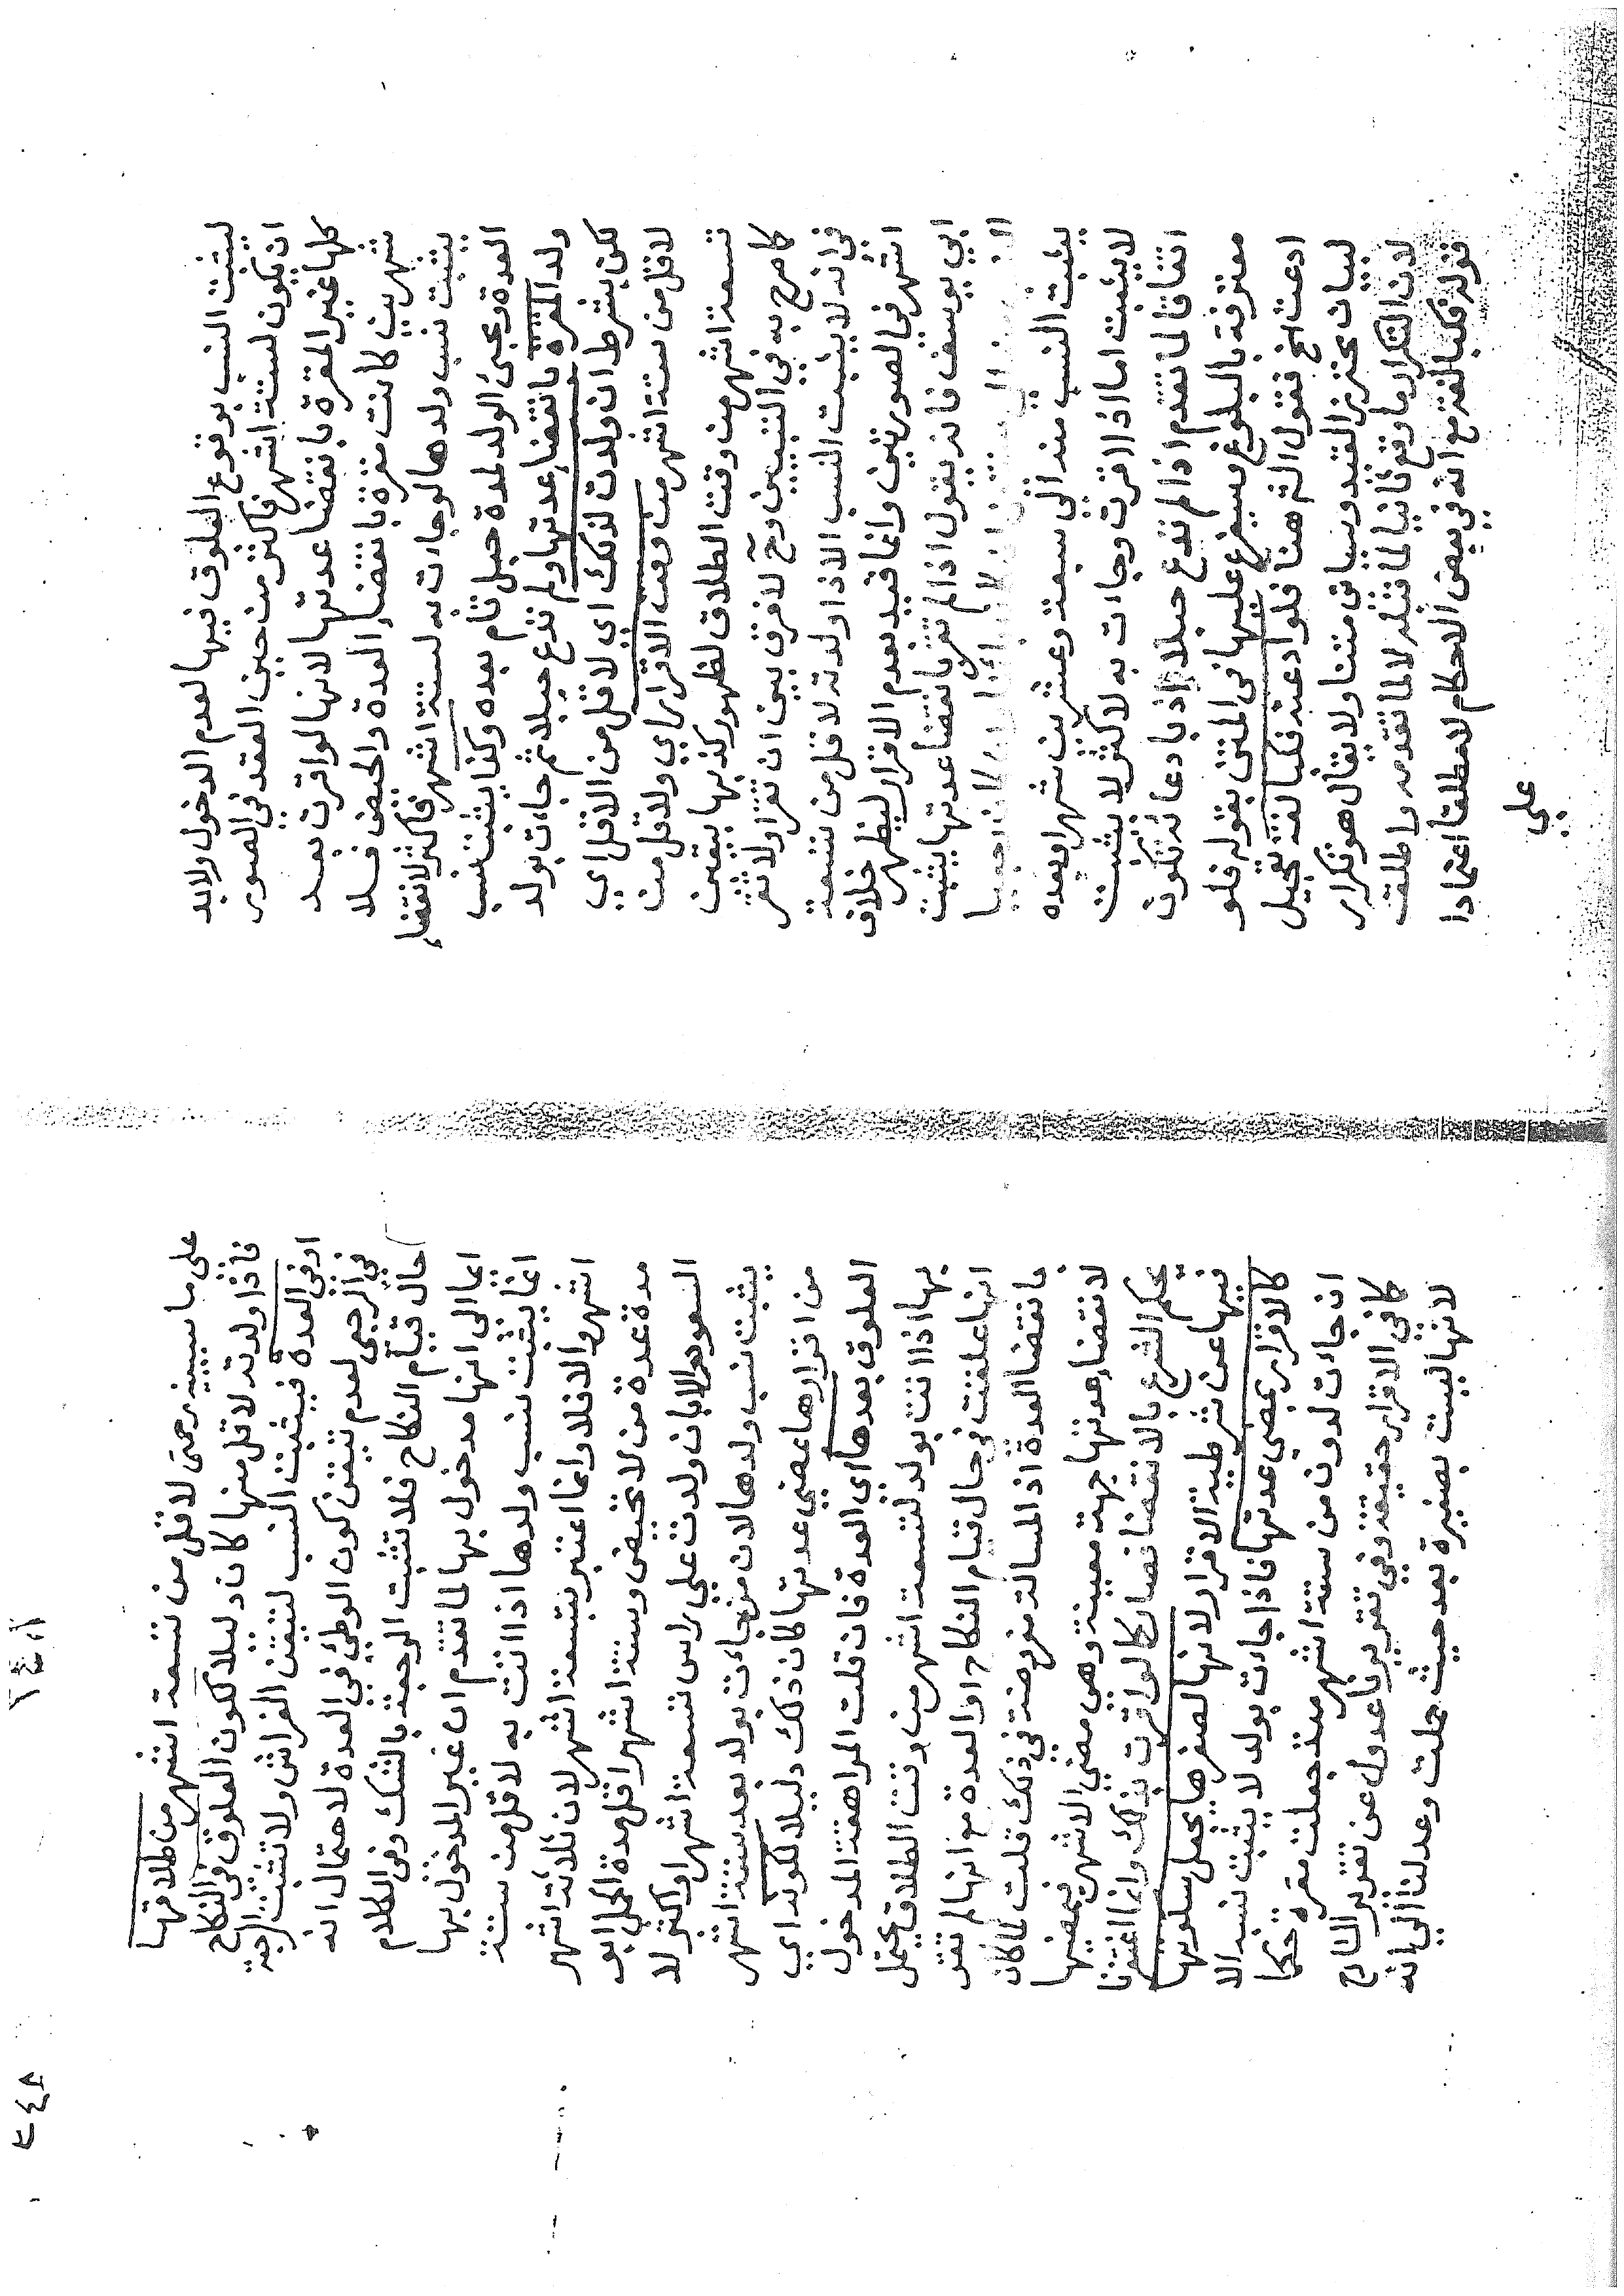 ليثبت النسب بوقوع العلوق فيها لعدم الدخول ولابد
ان يكون لستة اشهر فاكثر من حين العقد في الصور
كلها غير المقرة بانقضا عدتها لانها لو اقرت بعد
شهرين كانت مقرة بانقضاء العدة والحيض فلا
يثبت نسب ولدها لو جاءت به لستة اشهر فاكثر لانقضاء
العدة ومجئ الولد لمدة حبل تام بعده وكذا يثبت نسب
ولد المقرة بانقضاء عدتها ولم تدع حبلا ثم جاءت بولد
لكن بشرط ان ولدت لذلك اي لاقل من الاقل اي
لاقل من ستة اشهر من وقت الاقرار اي ولاقل من
تسعة اشهر من وقت الطلاق لظهور كذبها بيقين
كما صرح به في التبيين وح لا فرق بين ان تقر اولا تقر
في انه لا يثبت النسب الا اذا ولدته لاقل من تسعة
اشهر في الصورتين وانما قيد بعدم الاقرار ليظهر خلاف
ابي يوسف فانه يقول اذا لم تقر بانقضا عدتها يثبت
يثبت النسب منه الي سبعة وعشرين شهرا وبعده
لا يثبت اما اذا اقرت وجاءت به لاكثر لا يثبت
اتفاقا لما تقدم اذا لم تدع حبلا اذ بادعائه تكون
معترفة بالبلوغ سيفرع عليها في المتن بقوله فلو
ادعت الخ فقول الشر هنا فلو ادعته فكبالغة تعجيل
لبيان محترز القيد وسياتي متنا ولا يقال هو تكرار
لان التكرار ما وقع ثانيا لما قبله لا لما تقدمه واطلق
قوله فكبالغة مع انه في بعض الاحكام لا مطلقا اعتمادا
علي
٢٤٨
على ما سيبينه رحمتي لاقل من تسعة اشهر من طلاقها
فاذا ولدته لاقل منها كان دليلا لكون العلوق في النكاح
او في العدة فيثبت النسب لتيقن الفراش ولا تثبت الرجعة
في الرجعي لعدم تيقن كون الوطئ في العدة لاحتمال انه
حال قيام النكاح فلا تثبت الرجعة بالشك وفي الكلام
ايما الى انها مدخول بها لما تقدم ان غير المدخول بها
انما يثبت نسب ولدها اذا اتت به لاقل من ستة
اشهر والا فلا وانما اعتبر بتسعة اشهر لان ثلاثة اشهر
مدة عدة من لا تحيض وستة اشهر اقل مدة الحمل ابو
السعود والا بان ولدت علي راس تسعة اشهر او اكثر لا
يثبت نسب ولدها لان من جاءت بولد بعد ستة اشهر
من اقرارها بمضي عدتها كان ذلك دليلا لكونه اي
العلوق بعدها اي العدة فان قلت المراهقة المدخول
بها اذا اتت بولد لتسعة اشهر من وقت الطلاق يحتمل
انها علقت في حال قيام النكاح او العدة مع انها لم تقر
بانقضا العدة اذ المسالة مفروضة في ذلك قلت لما كان
لانقضاء عدتها جهة معينة وهي مضي الاشهر فبمضيها
يحكم الشرع بالانقضا فصار كما لو اقرت بذلك وانما اغتفرنا
فيها عن شرطية الاقرار لانها لصغرها يجعل سكوتها
كالاقرار بمضي عدتها فاذا جاءت بولد لا يثبت نسبه الا
ان جاءت لدون من ستة اشهر منذ جعلت مقرة حكما
كما في الاقرار حقيقة وفي تقريرنا عدول عن تقرير الشارح
لانها ليست بصغيرة بعد حيث حملت وعدلنا الي انه